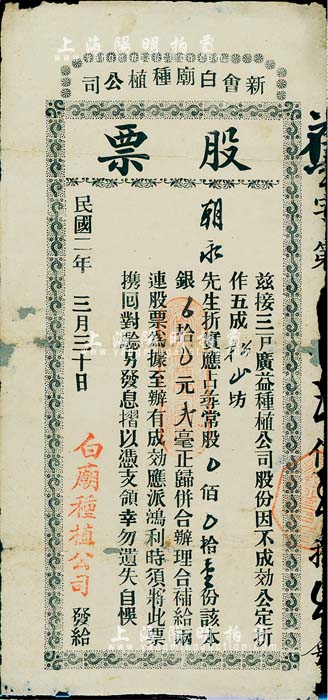 上海陽明拍賣
新會白廟種植公司
股票
茲接三戶廣益種植公司股份因不成効公定折
作五成 坊
朝永 先生折實應占尋常股 佰 拾壹份該本
銀 拾 元 毫正歸併合辦理合補給兩
連股票為據至辦有成効應派鴻利時須將此票
携囘對驗另發息摺以憑支領幸勿遺失自悞
民國二年 三月三十日
白廟種植公司 發給
字第
上海陽明拍賣